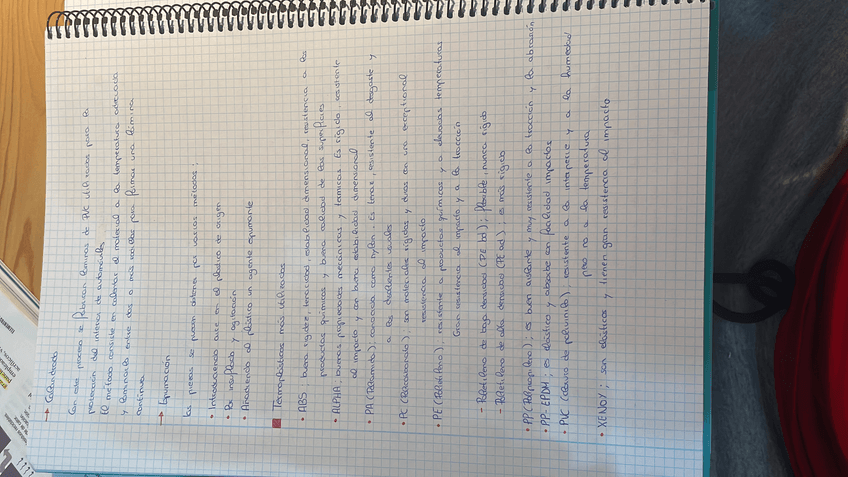 → Calandrado
Con este proceso se fabrican láminas de PVC utilizadas para la
presentación del interior de automóviles
El método consiste en calentar el material a la temperatura adecuada
y laminarlo entre dos o más rodillos para formar una lámina
continua
→ Espumación
Las piezas se pueden obtener por varios métodos:
• Introduciendo aire en el plástico de origen
• Por inyflado y agitación
• Añadiendo al plástico un agente espumante
Termoplásticos más utilizados
• ABS: buena rigidez, tenacidad, estabilidad dimensional, resistencia a los
productos químicos y buena calidad de las superficies
• ALPHA: buenas propiedades mecánicas y térmicas. Es rígido, resistente
al impacto y con buena estabilidad dimensional
• PA (Poliamida), conocida como nylon. Es tenaz, resistente al desgaste y
a los disolventes usuales
• PC (Policarbonato); son materiales rígidos y duros con una excepcional
resistencia al impacto
• PE (Polietileno), resistente a productos químicos y a elevadas temperaturas
Gran resistencia al impacto y a la tracción
- Polietileno de baja densidad (PE bd); flexible, nunca rígido
- Polietileno de alta densidad (PE ad); es más rígido
• PP (Polipropileno); es buen aislante y muy resistente a la tracción y la abrasión
• PP-EPDM; es elástico y absorbe con facilidad impactos
• PVC (cloruro de polivinilo), resistente a la intemperie y a la humedad
pero no a la temperatura
• XENOY; son elásticos y tienen gran resistencia al impacto